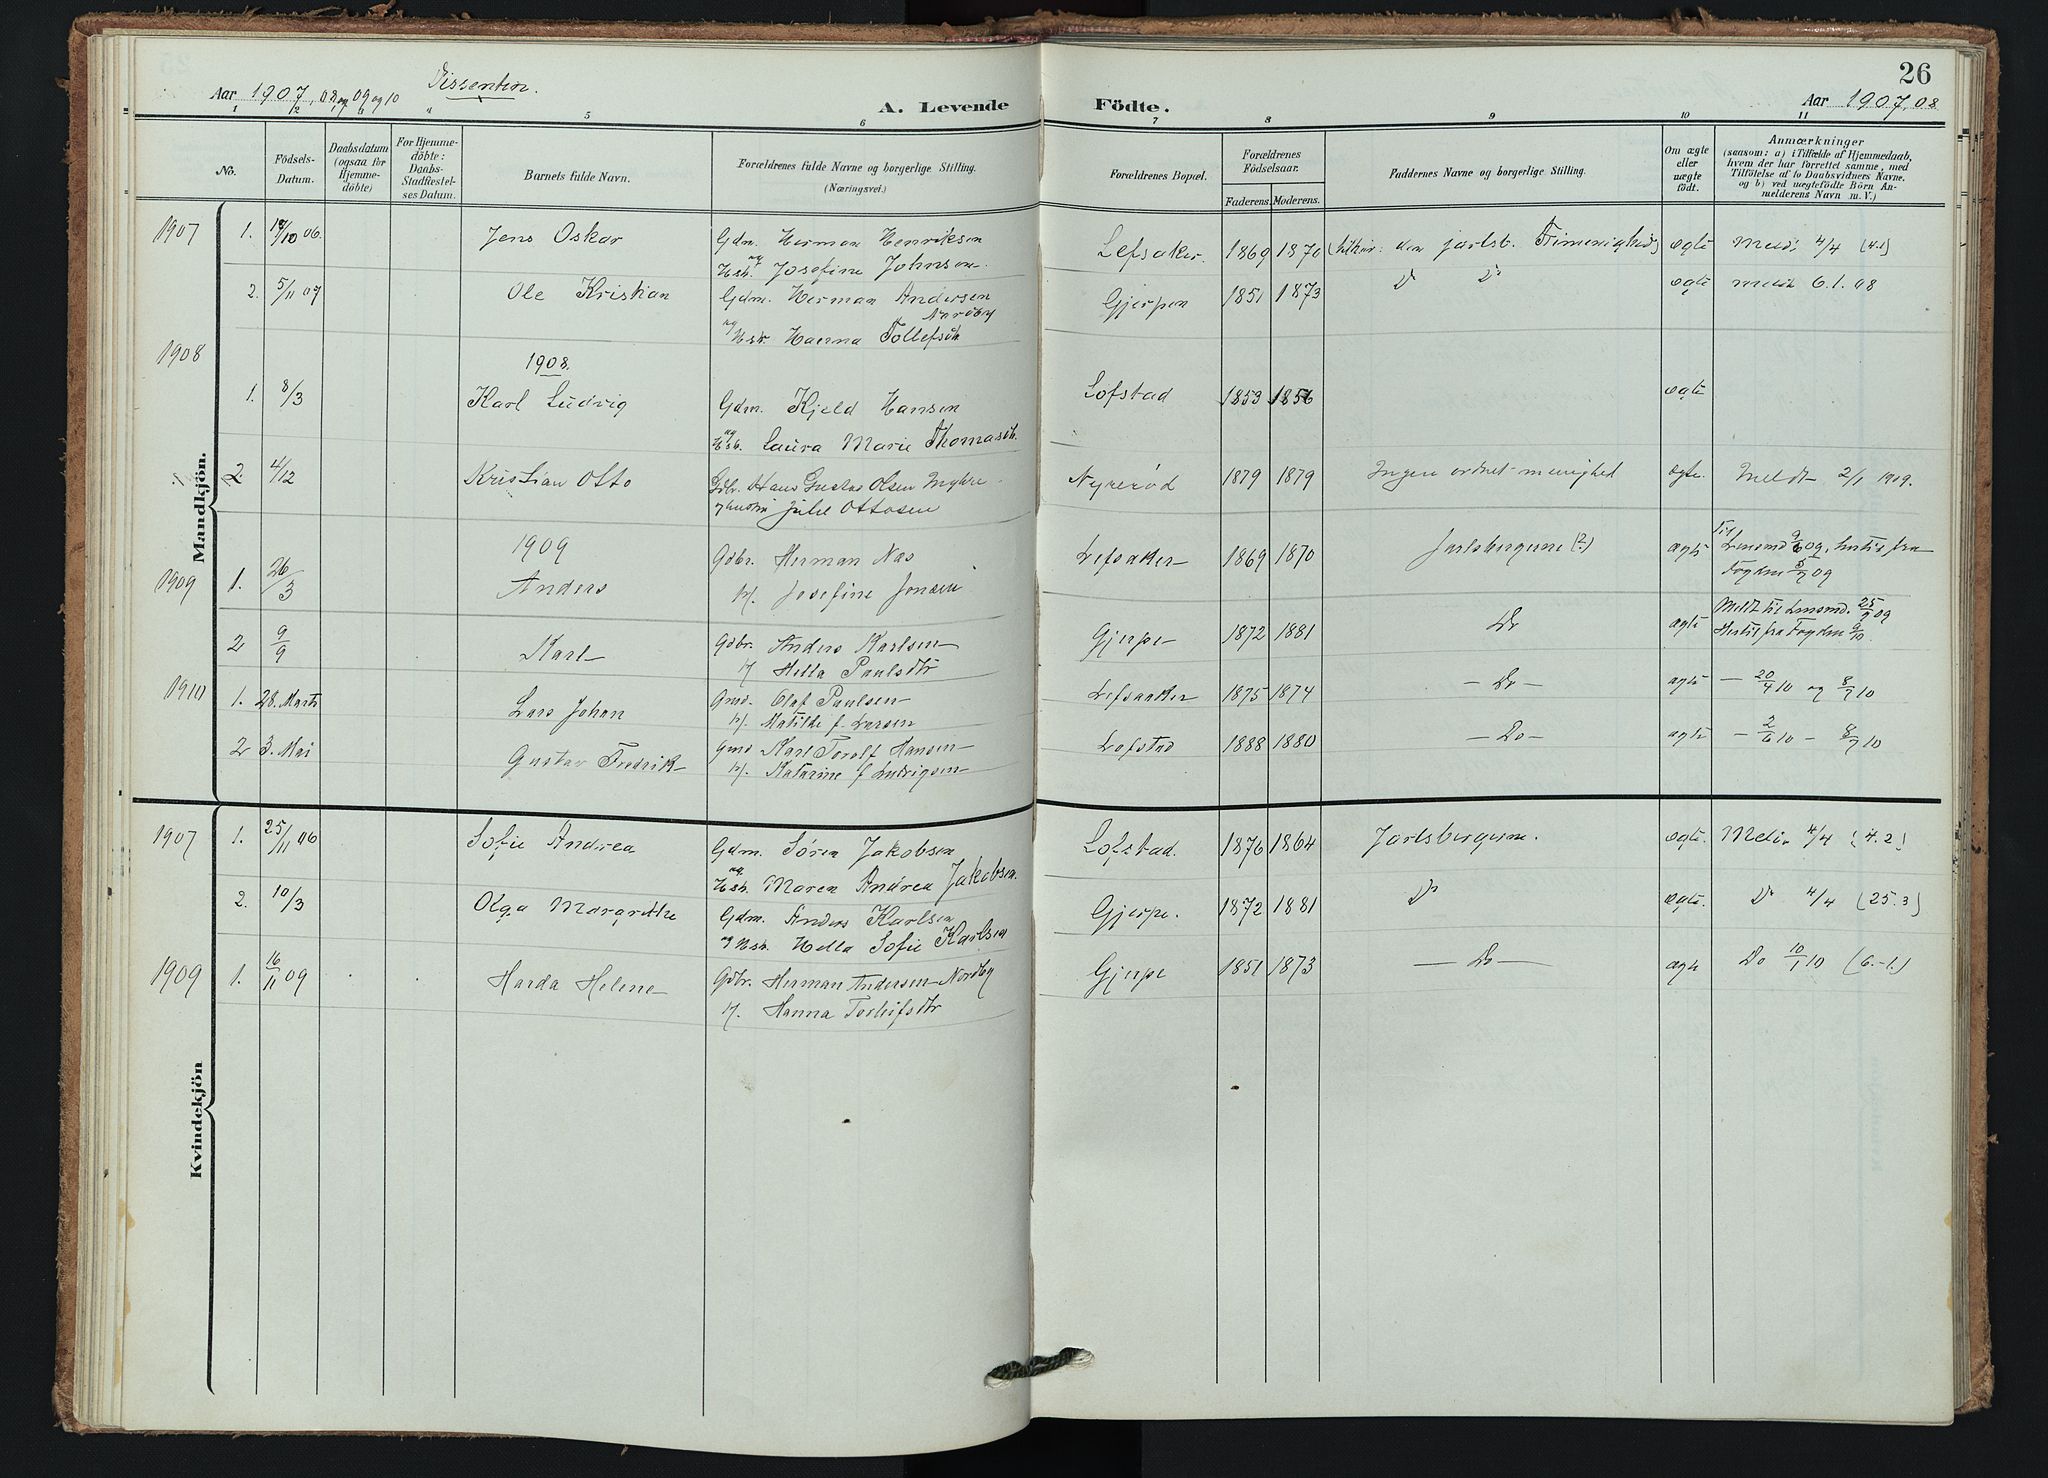 26
Aar 1907, 08, og 09 og 10 Dissentere.
A. Levende Födte.
Aar 1907, 08
1 2 3 4 5 6 7 8 9 10 11
No.
Födsels-Datum.
Daabsdatum (ogsaa for Hjemmedöbte)
For Hjemmedöbte: Daabs-Stadfæstelses Datum.
Barnets fulde Navn.
Forældrenes fulde Navne og borgerlige Stilling.
(Næringsvei.)
Forældrenes Bopæl.
Forældrenes Födselsaar.
Faderens. Moderens.
Faddernes Navne og borgerlige Stilling.
Om ægte eller uægte födt.
Anmærkninger
(saasom: a) i Tilfælde af Hjemmedaab, hvem der har forrettet samme, med Tilföielse af to Daabsvidners Navne, og b) ved uægtefödte Börn Anmelderens Navn m. V.)
Mandkjön.
1907 1. /10 06. Jens Oskar Gdm. Herman Henriksen Lefsaker. 1869 1870 den jarlsb. Frimenighed) ægte Meldt 4/4 (4.1)
og Hst. Josefine Johnsen.
2. 5/11 07 Ole Kristian Gdm. Herman Andersen Nordby Gjerpen 1851 1873 Do Do ægte meldt 6.1.08
og Hst. Hanna Tollefsdt.
1908
1908.
1. 8/3 Karl Ludvig Gdm. Kjeld Hansen Lofstad 1853 1856 ægte
og Hst. Laura Marie Thomasdt.
2 4/12 Kristian Otto Gdbr. Hans Gustav Olsen Myhre Nykerød 1879 1879 Ingen ordnet menighed ægte. Meldt 2/1 1909.
og hustru Julie Ottosen
1909
1909 1. 26/3 Anders Gdbr. Herman Næs Lefsaker 1869 1870 Jarlsbergerne (?) ægte Til Lensmd 9/6 09, hertil fra Fogden 5/7 09
H. Josefine Jonsen
2 9/9 Karl Gdbr. Anders Karlsen Gjerpe 1872 1881 Do ægte Meldt til Lensmd. 25/9 09 Hertil fra Fogden 9/10
H. Hella Paulsdtr
1910 1. 28. Marts Lars Johan Gmd. Olaf Paulsen Lefsaaker 1875 1874 — Do — ægte — 20/4 10 og 8/7 10
H. Matilde f. Larsen
2 3. Mai Gustav Fredrik Gmd Karl Torolf Hansen Lofstad 1888 1880 — Do — ægte — 2/6 10 — 8/7 10
H. Katarine f. Ludvigsen
Kvindekjön
1907 1. 25/11 06 Sofie Andrea Gdm. Søren Jakobsen Lofstad. 1876 1864 Jarlsbergerne. ægte. Meldt 4/4 (4.2)
og Hst. Maren Andrea Jakobsen.
2. 10/3 Olga Margrethe Gdm. Anders Karlsen Gjerpe. 1872 1881 Do ægte. Do 4/4 (25.3)
og Hst. Hella Sofie Karlsen
1909 1. 16/11 09 Harda Helene Gdbr. Herman Andersen Nordby Gjerpe 1851 1873 — Do — ægte Do 10/1 10 (6.-1.)
H. Hanna Torleifsdtr